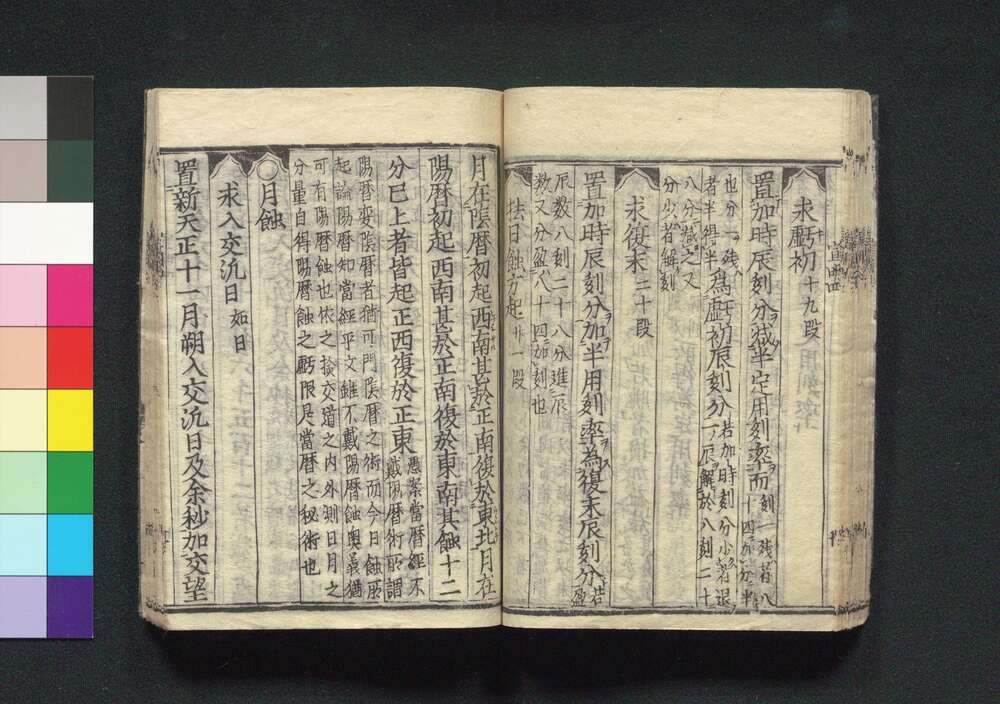 求虧初 十九段
置加時辰刻分减半定用刻率而
刻一残若八
十四加分半
也分一残
者半得半
為虧初辰刻分
若加時刻分少者退
一辰解於八刻二十
八分減之又
分少者解刻
求復末 二十段
置加時辰刻分加半用刻率為復末辰刻分
若盈
辰数八刻二十八分進辰
数又分盈八十四加刻也
法日蝕方起 廿一段
月在陰暦初起西南甚於正南復於東北月在
陽暦初起西南甚於正南復於東南其蝕十二
分已上者皆起正西復於正東
愚案當暦經不
戴陽暦術所謂
陽暦変陰暦者猶可門陰暦之術而今日蝕所
起論陽暦知當經平文雖不戴陽暦蝕奥義猶
可有陽暦蝕也依之按交蹈之内外測日月之
分量自得陽暦蝕之虧限是當暦之秘術也
月蝕
求入交汎日 如日
置新天正十一月朔入交汎日及余秒加交望